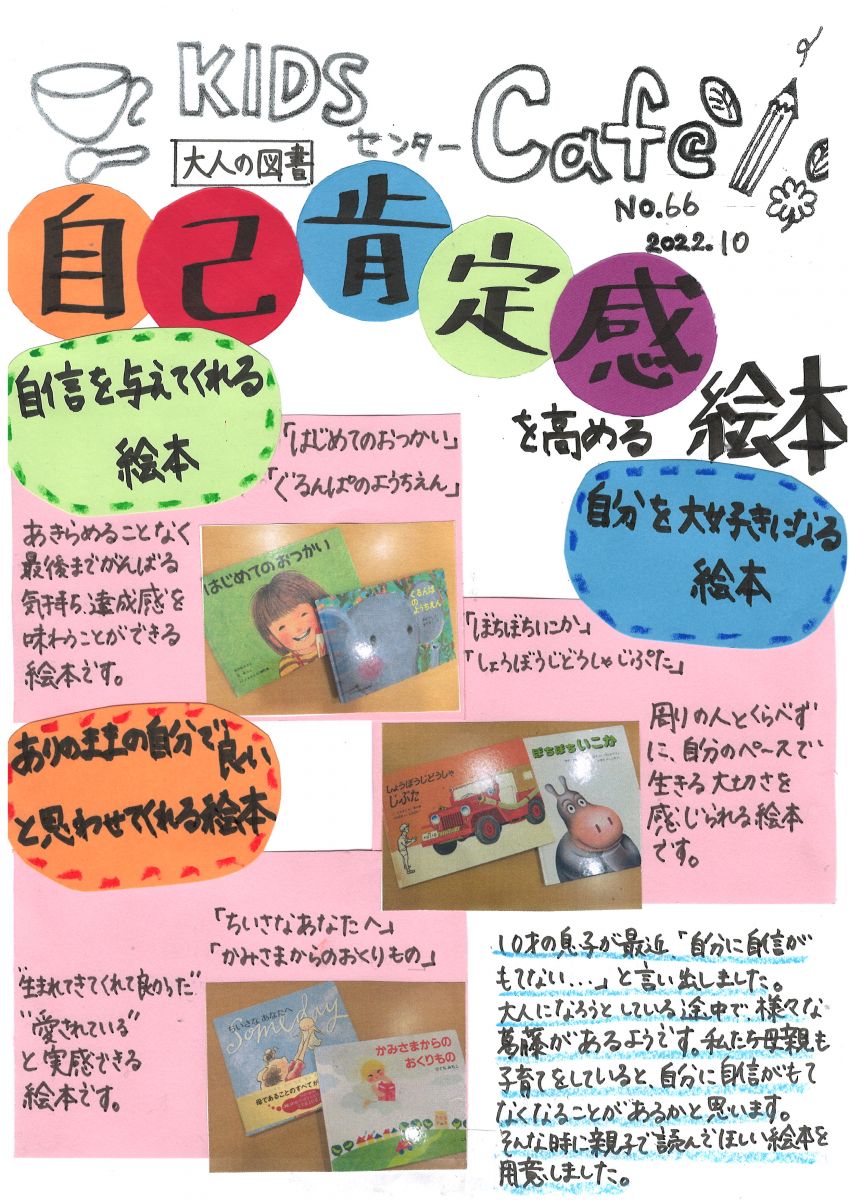 KIDS
センター
Cafe
大人の図書
No.66
2022.10
自己肯定感
を高める 絵本
自信を与えてくれる
絵本
「はじめてのおつかい」
「ぐるんぱのようちえん」
あきらめることなく
最後までがんばる
気持ち、達成感を
味わうことができる
絵本です。
はじめてのおつかい
ぐるんぱ
のようちえん
自分を大好きになる
絵本
「ぼちぼちいこか」
「しょうぼうじどうしゃじぷた」
周りの人とくらべず
に、自分のペースで
生きる大切さを
感じられる絵本
です。
しょうぼうじどうしゃ
じぷた
ぼちぼちいこか
ありのままの自分で良い
と思わせてくれる絵本
「ちいさなあなたへ」
「かみさまからのおくりもの」
"生まれてきてくれて良かった"
"愛されている"
と実感できる
絵本です。
ちいさなあなたへ
Someday
母であることのすべてが
かみさまからの
おくりもの
ひぐちみちこ
10才の息子が最近「自分に自信が
もてない...」と言い出しました。
大人になろうとしている途中で、様々な
葛藤があるようです。私たち母親も
子育てをしていると、自分に自信がもて
なくなることがあるかと思います。
そんな時に親子で読んでほしい絵本を
用意しました。